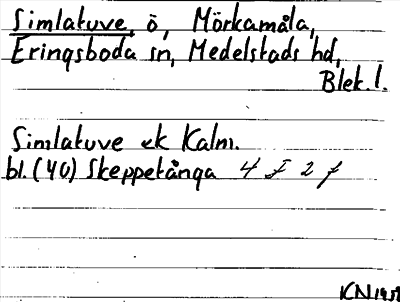 Simlakuve, ö, Mörkamåla,
Eringsboda sn, Medelstads hd,
Blek. l.
Simlakuve ek Kalm.
bl. (40) Skeppetånga 4 F 2 f
KN